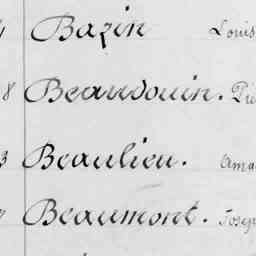 Bazin Louis
8 Beaudouin. Pie
3 Beaulieu. Ama
Beaumont. Josep